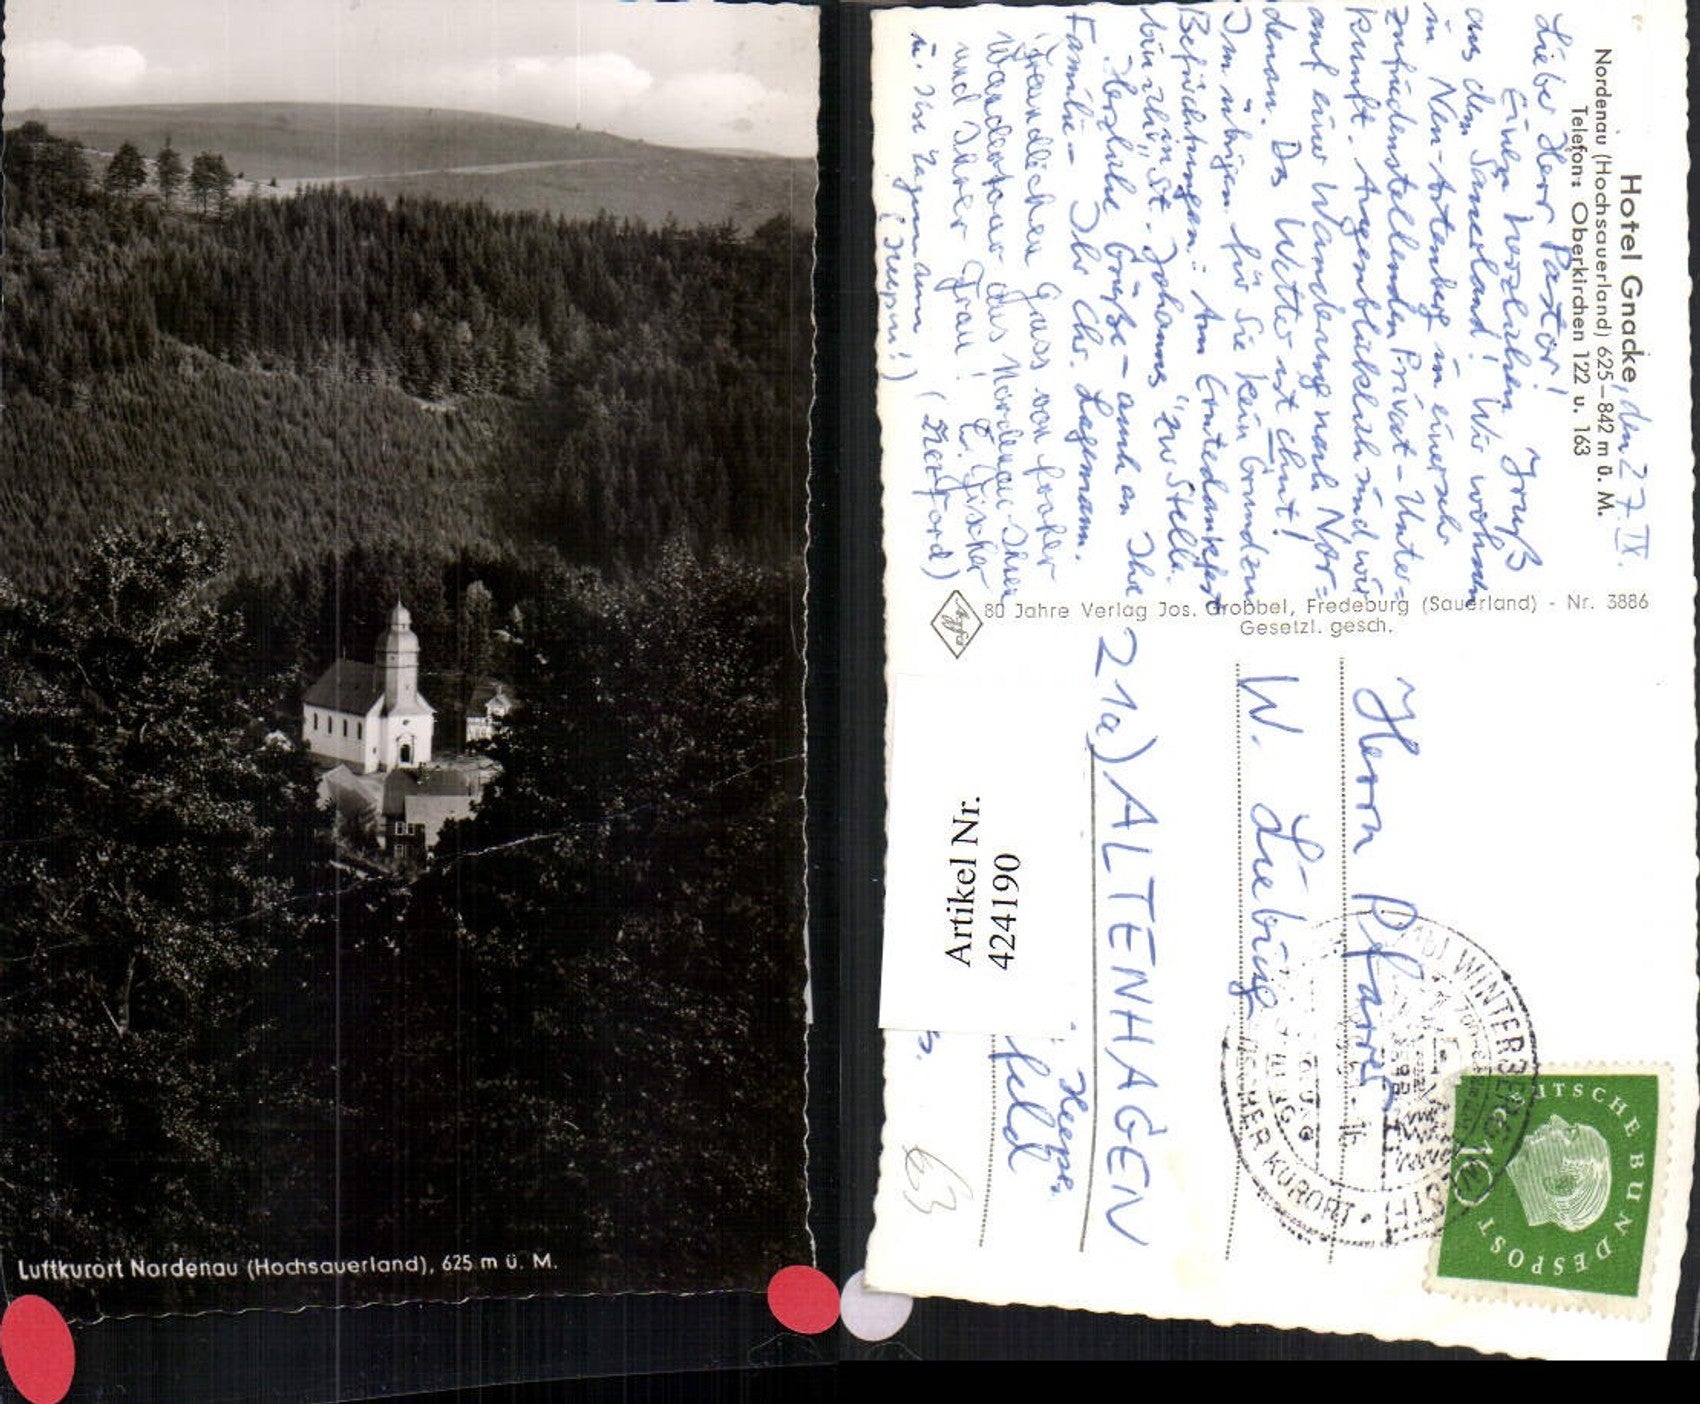 Luftkurort Nordenau (Hochsauerland), 625 m ü. M.
Hotel Gnacke, den 27. IX.
Nordenau (Hochsauerland) 625–842 m ü. M.
Telefon: Oberkirchen 122 u. 163
Lieber Herr Pastor!
Einen herzlichen Gruß
aus dem Sauerland! Wir wohnen
in Neu-Astenberg in einer sehr
zufriedenstellenden Privat-Unter=
kunft. Augenblicklich sind wir
auf einer Wanderung nach Nor=
denau. Das Wetter ist schön!
Im übrigen für Sie kein Grund zu
Befürchtungen: Am Erntedankfest
bin ich in St. Johannis "zur Stelle.
Herzliche Grüße – auch an Ihre
Familie – Ihr Chr. Lagemann.
Freundlichen Gruss von froher
Wandertour aus Nordenau Ihnen
und Ihrer Frau! E. Fischer
(Herford)
u. Ilse Lagemann
80 Jahre Verlag Jos. Grobbel, Fredeburg (Sauerland) - Nr. 3886
Gesetzl. gesch.
Agfa
Herrn Pfarrer
W. Liebing
21a) ALTENHAGEN
Heepen
feld
63
Artikel Nr.
424190
WINTERBERG
KURORT
DEUTSCHE BUNDESPOST
10